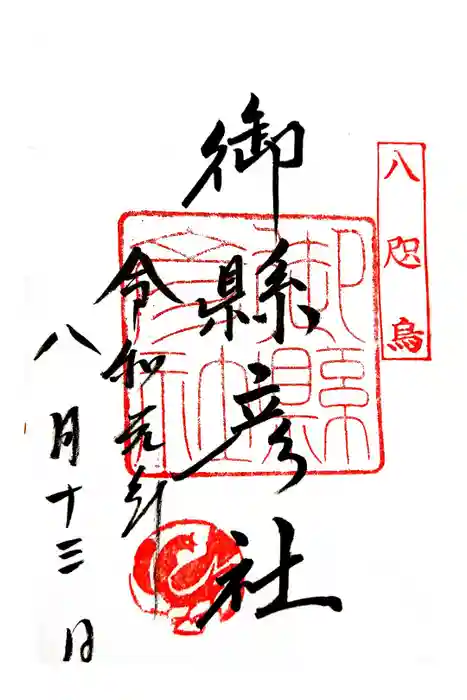 八咫烏
御縣彦社
令和元年
八月十三日
御縣
彦社